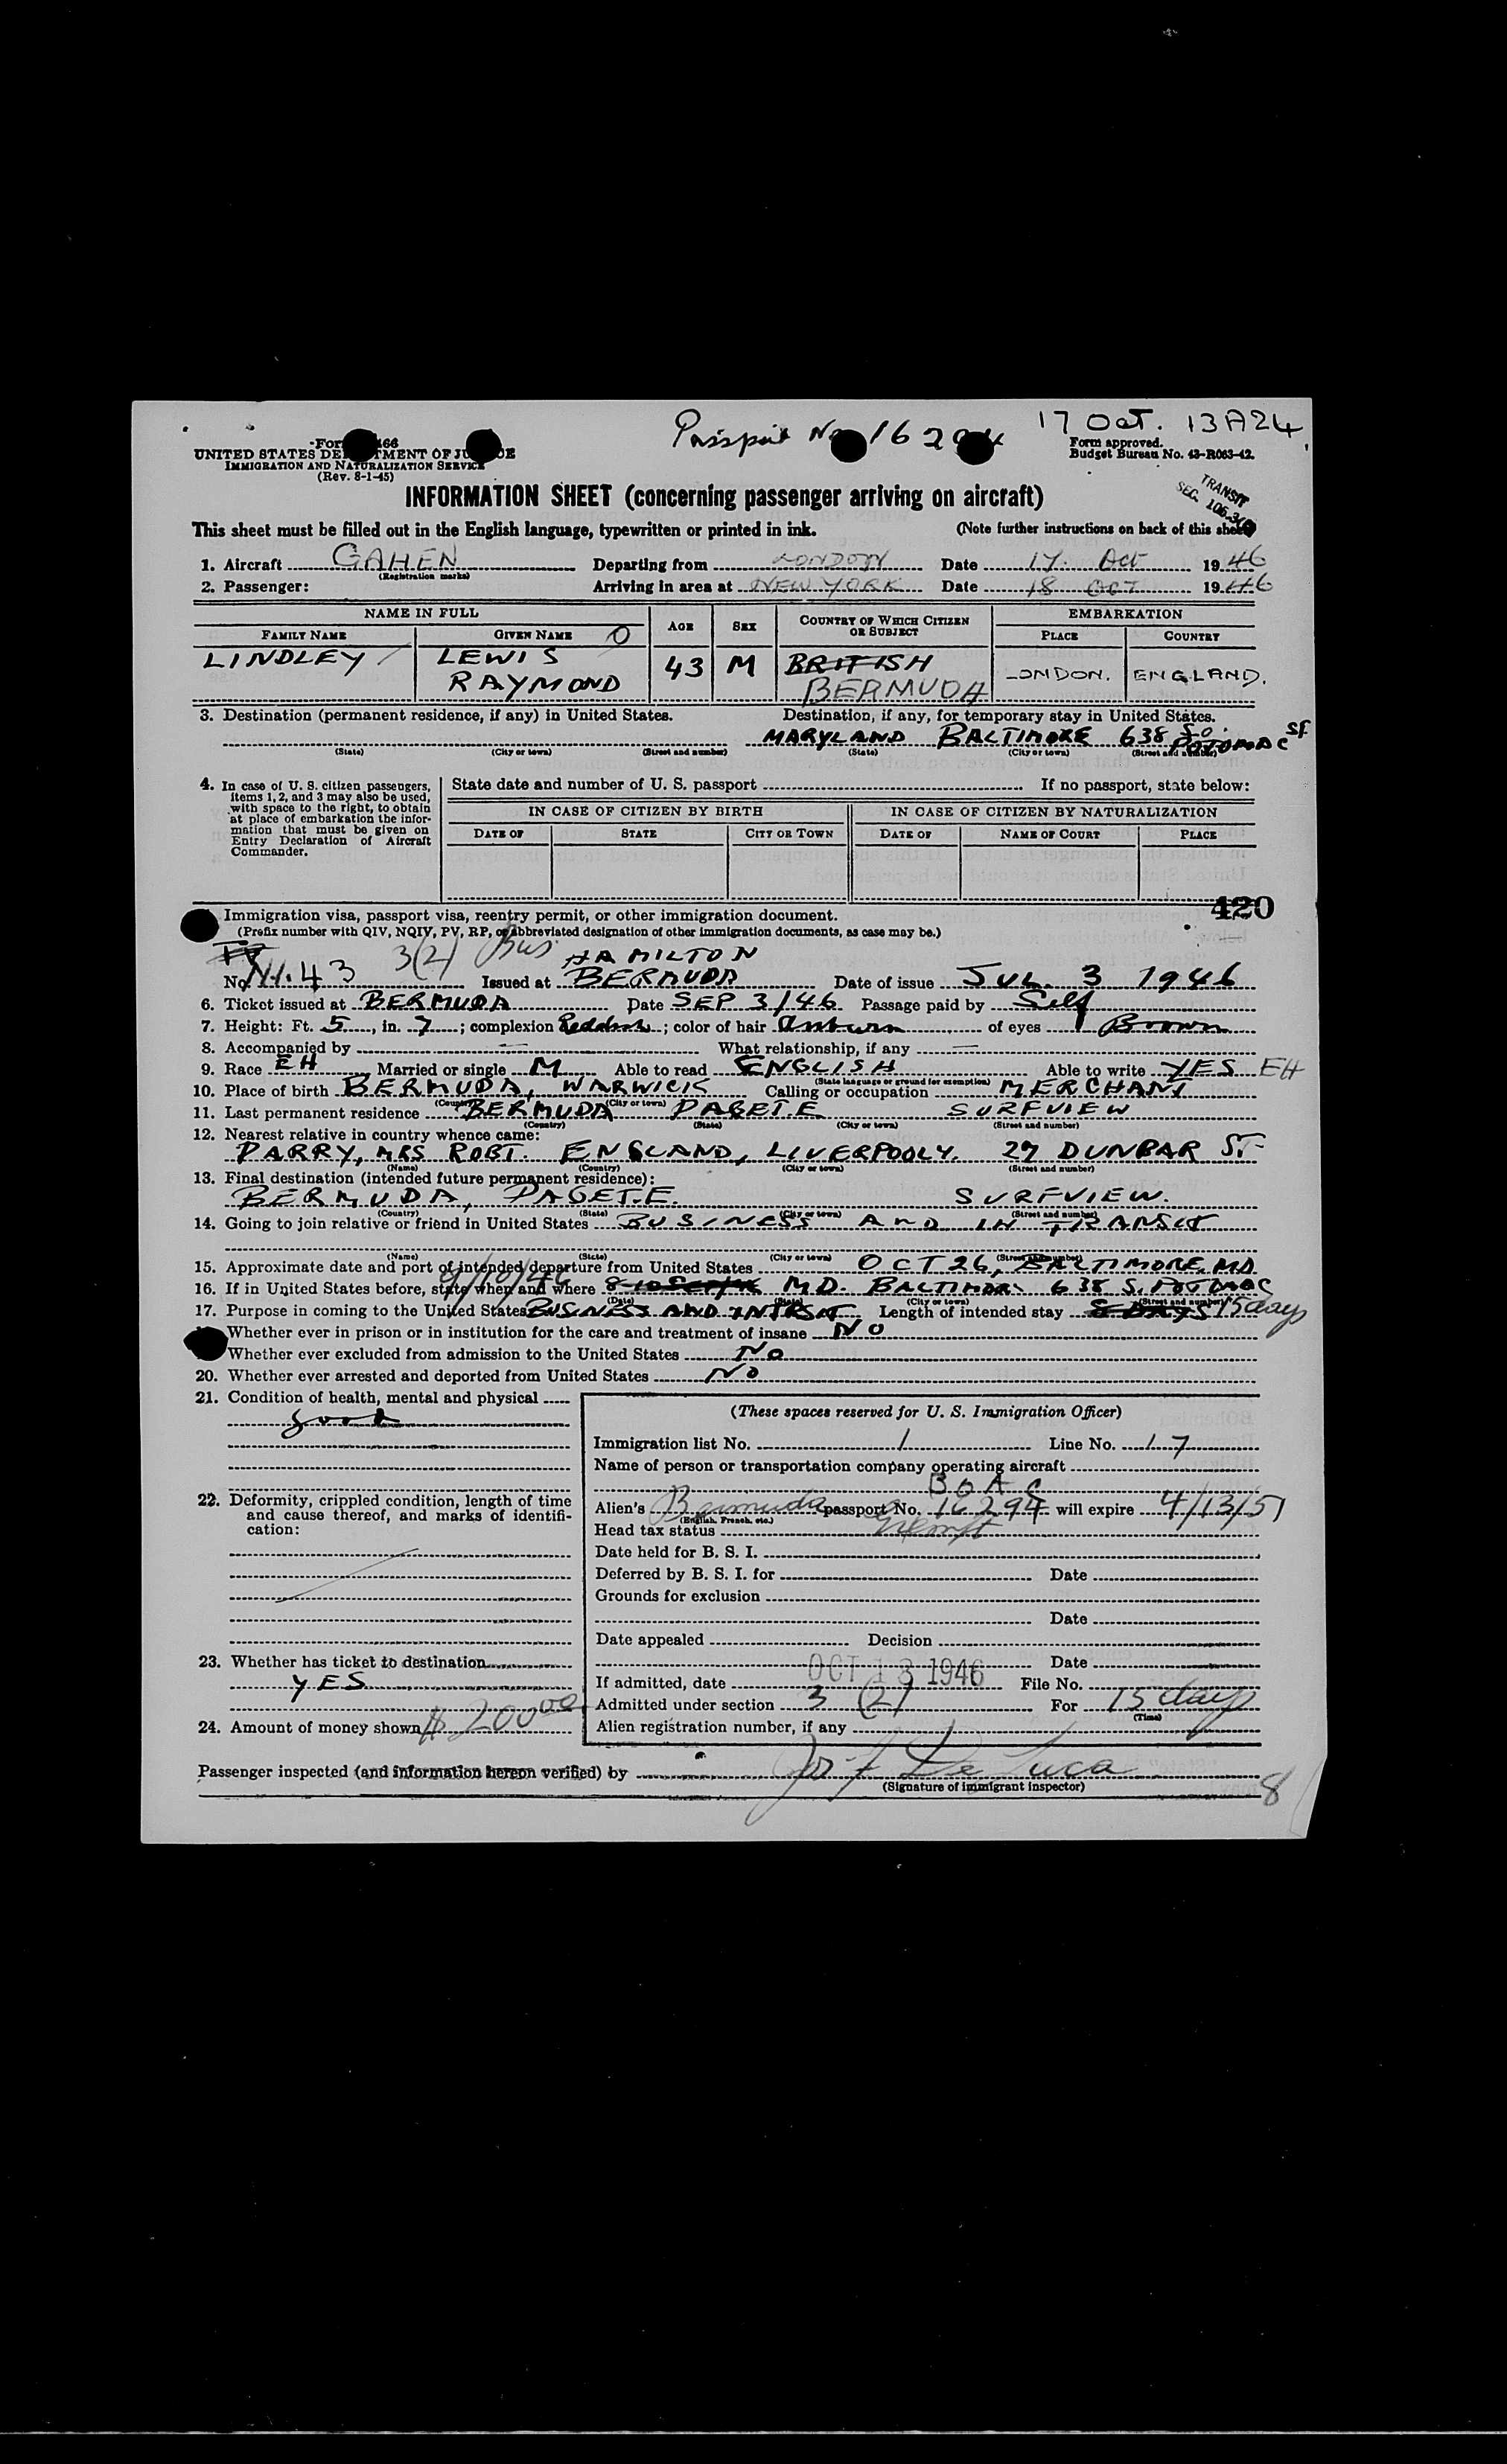 Passport No 16294
17 Oct. 13A24
Form approved.
Budget Bureau No. 43-R063-42.
UNITED STATES DEPARTMENT OF JUSTICE
IMMIGRATION AND NATURALIZATION SERVICE
(Rev. 8-1-45)
INFORMATION SHEET (concerning passenger arriving on aircraft)
TRANSIT
SEC. 106.3
This sheet must be filled out in the English language, typewritten or printed in ink. (Note further instructions on back of this sheet)
1. Aircraft GAHEN Departing from LONDON Date 17. Oct 1946
(Registration marks)
2. Passenger: Arriving in area at NEW YORK Date 18 OCT 1946
NAME IN FULL AGE SEX COUNTRY OF WHICH CITIZEN OR SUBJECT EMBARKATION
FAMILY NAME GIVEN NAME PLACE COUNTRY
LINDLEY LEWIS RAYMOND 43 M BRITISH BERMUDA LONDON. ENGLAND.
3. Destination (permanent residence, if any) in United States. Destination, if any, for temporary stay in United States.
MARYLAND BALTIMORE 638 So. POTOMAC St
(State) (City or town) (Street and number) (State) (City or town) (Street and number)
4. In case of U. S. citizen passengers, items 1, 2, and 3 may also be used, with space to the right, to obtain at place of embarkation the information that must be given on Entry Declaration of Aircraft Commander.
State date and number of U. S. passport If no passport, state below:
IN CASE OF CITIZEN BY BIRTH IN CASE OF CITIZEN BY NATURALIZATION
DATE OF STATE CITY OR TOWN DATE OF NAME OF COURT PLACE
420
Immigration visa, passport visa, reentry permit, or other immigration document.
(Prefix number with QIV, NQIV, PV, RP, or abbreviated designation of other immigration documents, as case may be.)
3(2) Bus HAMILTON
No. V1.43 Issued at BERMUDA Date of issue JUL. 3 1946
6. Ticket issued at BERMUDA Date SEP 3/46 Passage paid by Self
7. Height: Ft. 5, in. 7; complexion Reddish; color of hair Auburn of eyes Brown
8. Accompanied by — What relationship, if any —
9. Race EH Married or single M Able to read ENGLISH Able to write YES EH
(State language or ground for exemption)
10. Place of birth BERMUDA, WARWICK Calling or occupation MERCHANT
(Country) (City or town)
11. Last permanent residence BERMUDA PAGET.E SURFVIEW
(Country) (State) (City or town) (Street and number)
12. Nearest relative in country whence came:
PARRY, MRS ROBT. ENGLAND, LIVERPOOL 27 DUNBAR ST.
(Name) (Country) (City or town) (Street and number)
13. Final destination (intended future permanent residence):
BERMUDA, PAGET.E. SURFVIEW.
(Country) (State) (City or town) (Street and number)
14. Going to join relative or friend in United States BUSINESS AND IN TRANSIT
(Name) (State) (City or town) (Street and number)
15. Approximate date and port of intended departure from United States OCT 26, BALTIMORE MD
9/10/46
16. If in United States before, state when and where MD. BALTIMORE 638 S. POTOMAC
(Date) (State) (City or town) (Street and number)
17. Purpose in coming to the United States BUSINESS AND INTRSIT Length of intended stay 8 DAYS 15 days
Whether ever in prison or in institution for the care and treatment of insane NO
Whether ever excluded from admission to the United States No
20. Whether ever arrested and deported from United States No
21. Condition of health, mental and physical
good
22. Deformity, crippled condition, length of time and cause thereof, and marks of identification:
23. Whether has ticket to destination
YES
24. Amount of money shown $200.00
(These spaces reserved for U. S. Immigration Officer)
Immigration list No. 1 Line No. 17
Name of person or transportation company operating aircraft
B O A C
Alien's Bermuda passport No. 16294 will expire 4/13/51
(English, French, etc.)
Head tax status Exempt
Date held for B. S. I.
Deferred by B. S. I. for Date
Grounds for exclusion
Date
Date appealed Decision
Date
If admitted, date OCT 18 1946 File No.
Admitted under section 3 (2) For 15 days
(Time)
Alien registration number, if any
Passenger inspected (and information hereon verified) by Jos F De Luca
(Signature of immigrant inspector)
8